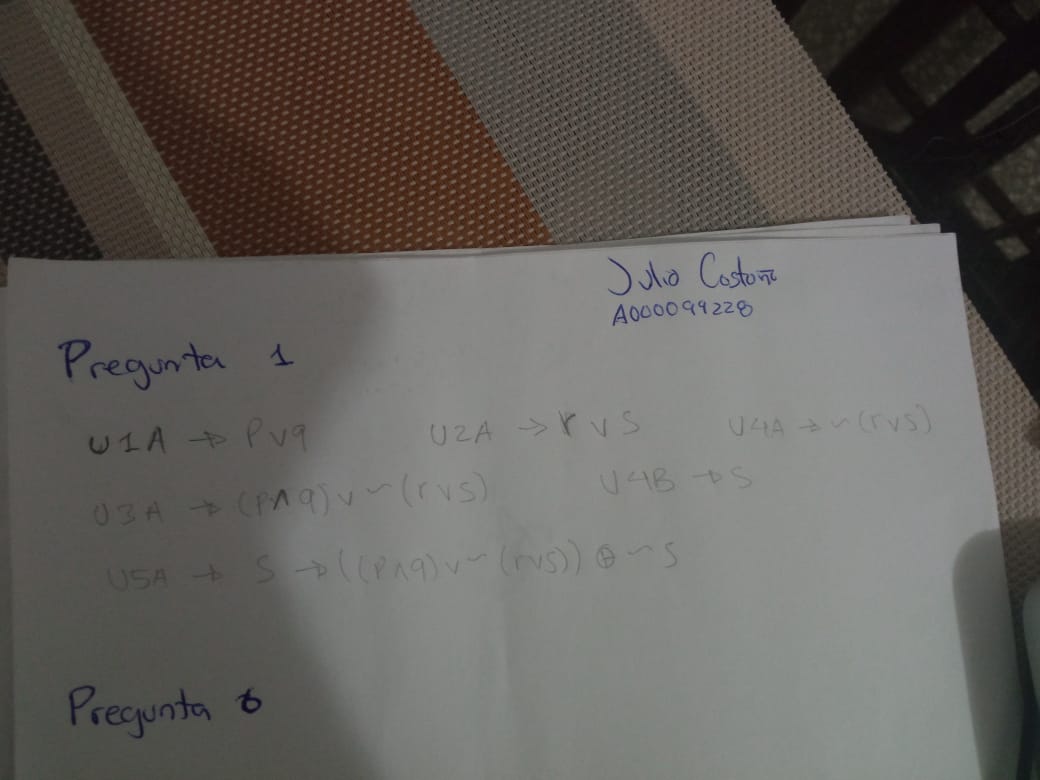 Julio Castaño
A000099228
Pregunta 1
U1A → P∨q U2A → r∨s U4A → ~(r∨s)
U3A → (P∧q)∨~(r∨s) U4B → S
U5A → S → ((P∧q)∨~(r∨s)) ⊕ ~S
Pregunta 6